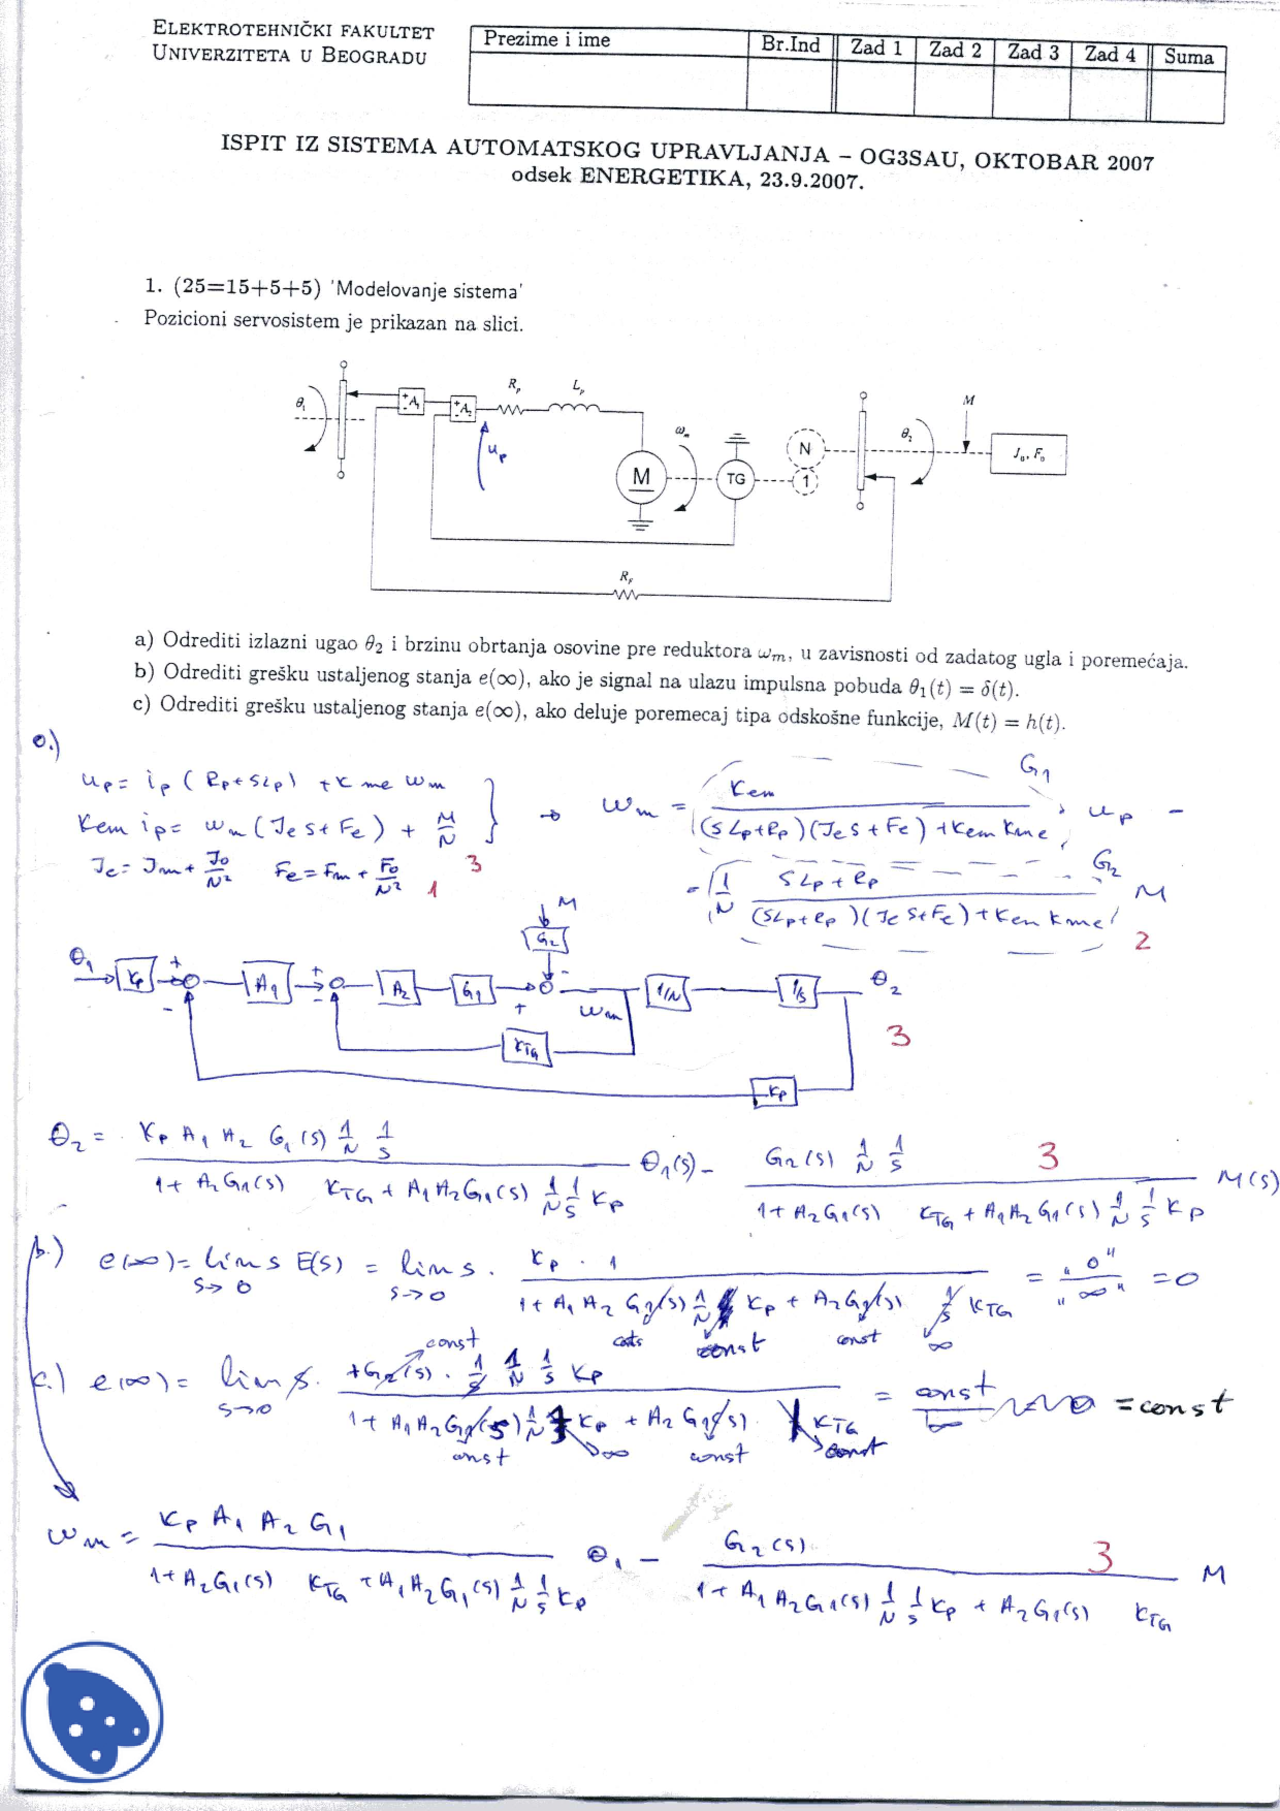 ELEKTROTEHNIČKI FAKULTET
UNIVERZITETA U BEOGRADU
Prezime i ime Br.Ind Zad 1 Zad 2 Zad 3 Zad 4 Suma
ISPIT IZ SISTEMA AUTOMATSKOG UPRAVLJANJA – OG3SAU, OKTOBAR 2007
odsek ENERGETIKA, 23.9.2007.
1. (25=15+5+5) 'Modelovanje sistema'
Pozicioni servosistem je prikazan na slici.
θ₁ +A₁ - +A₂ - Rp Lp
up
M ωm TG N 1 θ₂ M J₀, F₀
a) Odrediti izlazni ugao θ₂ i brzinu obrtanja osovine pre reduktora ωm, u zavisnosti od zadatog ugla i poremećaja.
b) Odrediti grešku ustaljenog stanja e(∞), ako je signal na ulazu impulsna pobuda θ₁(t) = δ(t).
c) Odrediti grešku ustaljenog stanja e(∞), ako deluje poremecaj tipa odskošne funkcije, M(t) = h(t).
a.)
up = ip (Rp+sLp) + Kme ωm
Kem ip = ωm (Je s + Fe) + M/N
Je = Jm + J0/N² Fe = Fm + F0/N² 1
3
→ ωm = Kem / ((sLp+Rp)(Je s+Fe)+Kem Kme) · up -
G1
- 1/N (sLp+Rp) / ((sLp+Rp)(Je s+Fe)+Kem Kme) M
G2
2
θ1 Kp + - A1 + - A2 G1 + - ωm 1/N 1/s θ2
M G2
KTG
Kp
3
θ2 = Kp A1 A2 G1(s) 1/N 1/s / (1 + A2G1(s) KTG + A1A2G1(s) 1/N 1/s Kp) θ1(s) - G2(s) 1/N 1/s / (1 + A2G1(s) KTG + A1A2G1(s) 1/N 1/s Kp) M(s)
3
b.) e(∞) = lim s→0 s E(s) = lim s→0 s · Kp · 1 / (1 + A1 A2 G1(s) 1/N Kp + A2G1(s) KTG) = "0"/"∞" = 0
const const ∞
c.) e(∞) = lim s→0 s · +G2(s) · 1/s 1/N 1/s Kp / (1 + A1A2G1(s) 1/N Kp + A2G1(s) KTG) = const/∞ = const
const const ∞ const const
ωm = Kp A1 A2 G1 / (1+A2G1(s) KTG + A1A2G1(s) 1/N 1/s Kp) θ1 - G2(s) / (1 + A1A2G1(s) 1/N 1/s Kp + A2G1(s) KTG) M
3